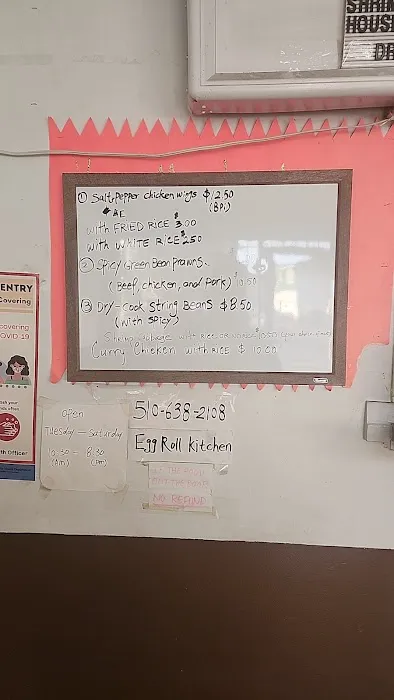 SHRIM
HOUSE
DR
① Salt & Pepper chicken wings $12.50
(8pi)
with FRIED RICE $3.00
with WHITE RICE $2.50
② Spicy Green Bean Prawns.
(Beef, chicken, and Pork) $10.50
③ Dry-Cook String Beans $8.50
(with spicy)
Curry Chicken with RICE $10.50
ENTRY
Covering
covering
COVID-19
th Officer
Open
Tuesday — Saturday
10:30 - 8:30
(am) (pm)
510-638-2108
Egg Roll Kitchen
NO REFUND